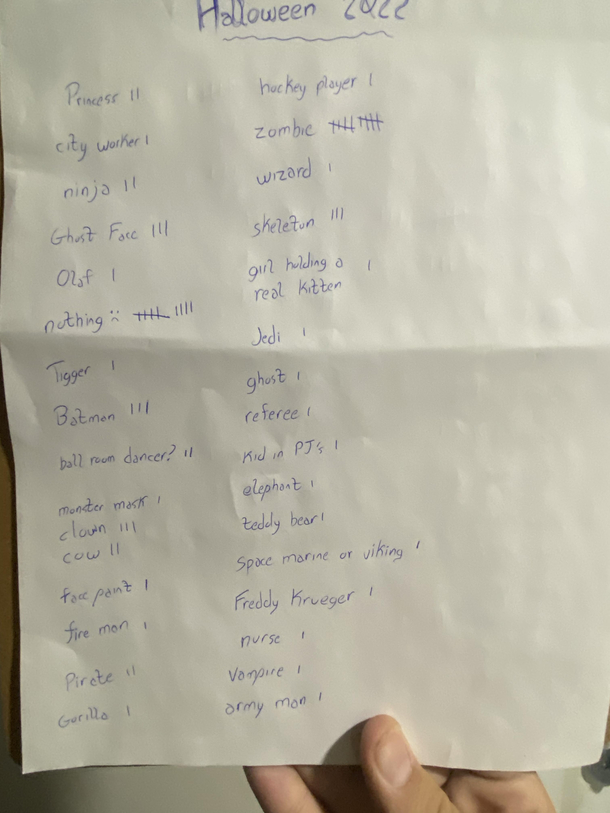 Halloween 2022
Princess II
city worker I
ninja II
Ghost Face III
Olaf I
nothing :( 卌 IIII
Tigger I
Batman III
ball room dancer? II
monster mask I
clown III
cow II
face paint I
fire man I
Pirate II
Gorilla I
hockey player I
zombie 卌 卌
wizard I
skeleton III
girl holding a I
real kitten
Jedi I
ghost I
referee I
Kid in PJ's I
elephant I
teddy bear I
Space marine or viking I
Freddy Krueger I
nurse I
Vampire I
army man I